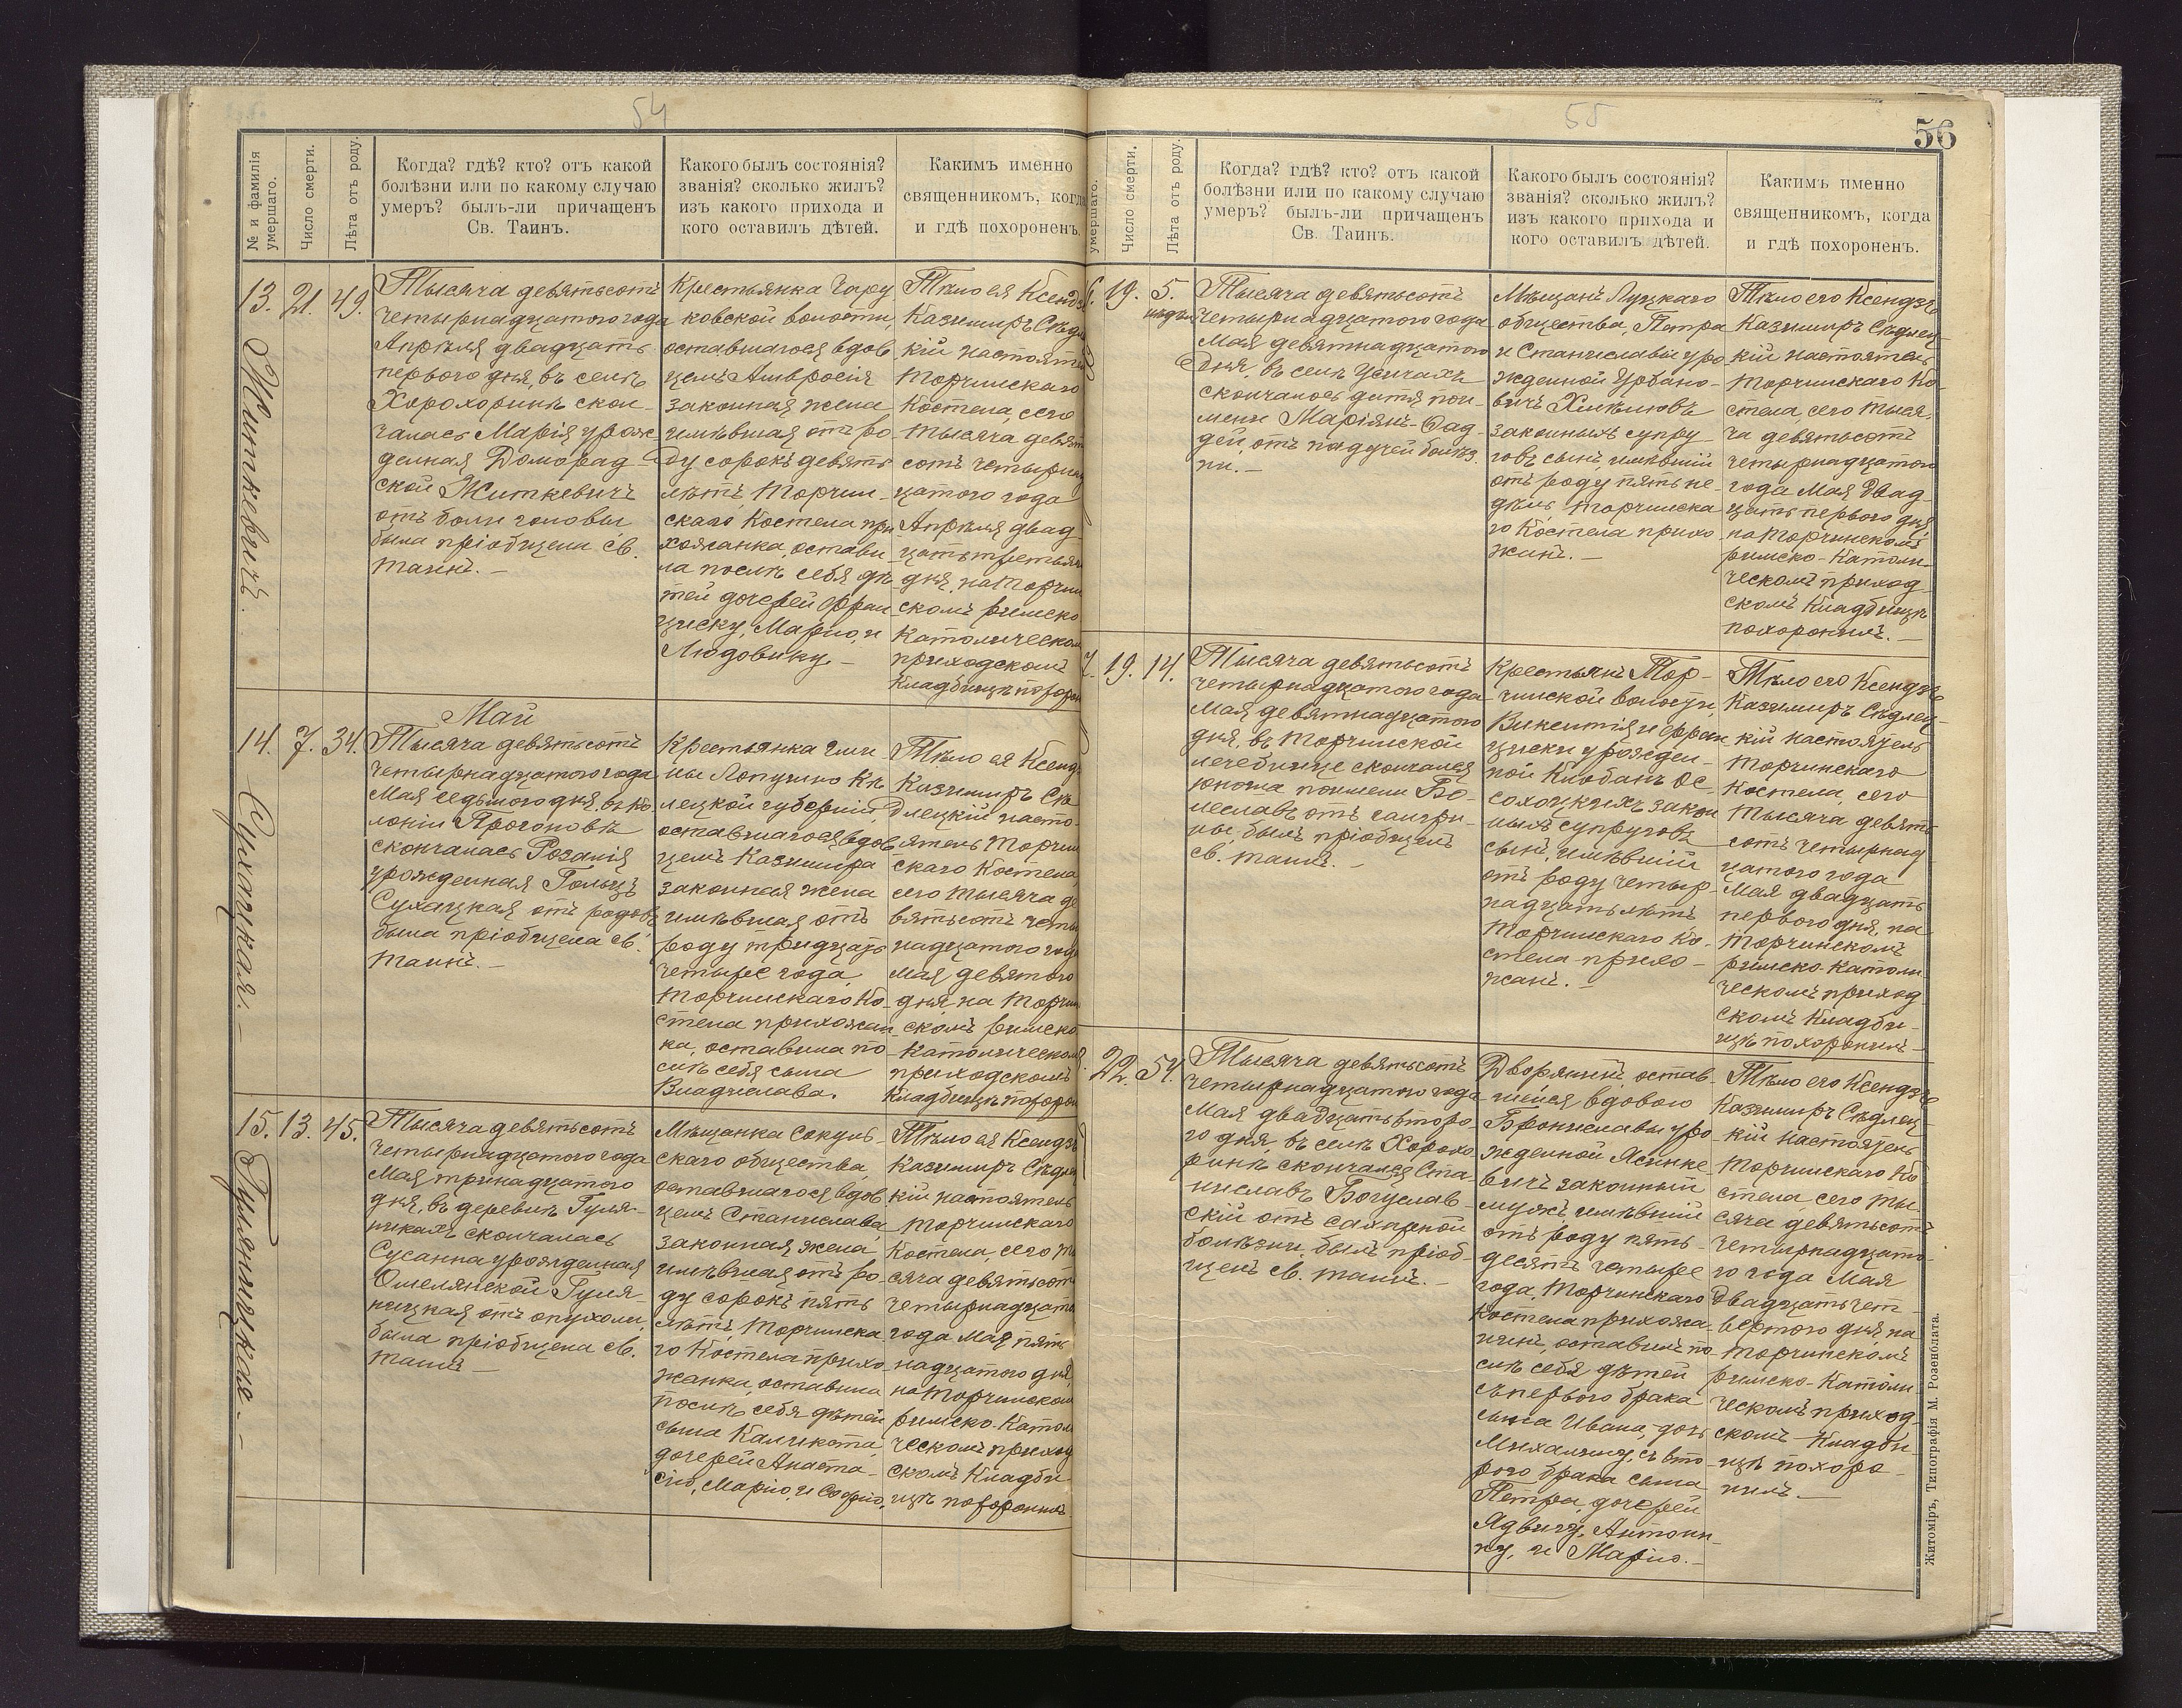 54
№ и фамилія умершаго.
Число смерти.
Лѣта отъ роду.
Когда? гдѣ? кто? отъ какой
болѣзни или по какому случаю
умеръ? былъ-ли причащенъ
Св. Таинъ.
Какого былъ состоянія?
званія? сколько жилъ?
изъ какого прихода и
кого оставилъ дѣтей.
Каким именно
священникомъ, когда
и гдѣ похороненъ.
13. 21. 49.
Житкевичъ.
Тысяча девятьсотъ
четырнадцатого года
Апрѣля двадцать
первого дня, въ селѣ
Хорохоринѣ скон-
чалась Марія урож-
денная Доморад-
ской Житкевичъ
отъ боли головы
была пріобщена св.
таинъ.-
Крестьянка Чару
ковской волости,
оставшагося вдов
цемъ Амвросія
законная жена
имѣвшая отъ ро-
ду сорокъ девять
лѣтъ, Торчин-
скаго Костела при
хожанка, остави
ла послѣ себя дѣ
тей дочерей Фран
циску, Марію, и
Людовику.-
Тѣло ея Ксендзъ
Казимиръ Сѣдлец
кій настоятель
Торчинскаго
Костела, сего
тысяча девять
сотъ четырнад
цатого года
Апрѣля двад-
цать третьяго
дня, на Торчин
скомъ римско
Католическомъ
приходскомъ
Кладбищѣ похорон
Май
14. 7. 34.
Сухацкая.-
Тысяча девятьсотъ
четырнадцатого года
Мая седьмого дня, въ ко
лоніи Ярогоновкѣ
скончалась Розалія
урожденная Гольцъ
Сухацкая отъ родовъ
была пріобщена св.
таинъ.-
Крестьянка Гми
ны Лопушно Кѣ
лецкой губерніи,
оставшагося вдов
цемъ Казимира
законная жена
имѣвшая отъ
роду тридцать
четыре года,
Торчинскаго Ко-
стела прихожан
ка, оставила по-
слѣ себя сына
Владислава.
Тѣло ея Ксендзъ
Казимиръ Сѣ
длецкій насто-
ятель Торчин
скаго Костела,
сего тысяча де
вятьсотъ четыр
надцатого года
Мая девятого
дня, на Торчин
скомъ римско
Католическомъ
приходскомъ
Кладбищѣ похорон
15. 13. 45.
Гуляницкая.-
Тысяча девятьсотъ
четырнадцатого года
Мая тринадцатого
дня, въ деревнѣ Гуля-
никахъ скончалась
Сусанна урожденная
Омелянской Гуля-
ницкая отъ опухоли,
была пріобщена св.
таинъ-
Мѣщанка Сокуль-
скаго общества,
оставшагося вдов
цемъ Станислава,
законная жена
имѣвшая отъ ро-
ду сорокъ пять
лѣтъ, Торчинска
го Костела прихо
жанка, оставила
послѣ себя дѣтей
сына Каликста,
дочерей Анаста-
сію, Марію, и Софію.
Тѣло ея Ксендзъ
Казимиръ Сѣдлец
кій настоятель
Торчинскаго
Костела, сего ты
сяча девятьсотъ
четырнадцато
года Мая пят
надцатого дня
на Торчинскомъ
римско-Католи
ческомъ приход
скомъ Кладби
щѣ похоронилъ
55
56
умершаго.
Число смерти.
Лѣта отъ роду.
Когда? гдѣ? кто? отъ какой
болѣзни или по какому случаю
умеръ? былъ-ли причащенъ
Св. Таинъ.
Какого былъ состоянія?
званія? сколько жилъ?
изъ какого прихода и
кого оставилъ дѣтей.
Каким именно
священникомъ, когда
и гдѣ похороненъ.
6. 19. 5.
недѣль
Тысяча девятьсотъ
четырнадцатого года
Мая девятнадцатого
дня, въ селѣ Усичахъ
скончалось дитя по и-
мени Маріянъ-Фад-
дей, отъ падучей болѣз
ни.-
Мѣщанъ Луцкаго
общества, Петра
и Станиславы уро
жденной Урбано-
вичъ Хмѣлювъ
законныхъ супру-
говъ сынъ, имѣвшій
отъ роду пять не-
дѣль Торчинска
го Костела прихо
жанъ.-
Тѣло его Ксендзъ
Казимиръ Сѣдлец
кій настоятель
Торчинскаго Ко-
стела, сего тыся-
ча девятьсотъ
четырнадцатого
года Мая двад-
цать первого дня
на Торчинскомъ
римско-Католи-
ческомъ приход-
скомъ Кладбищѣ
похоронилъ.-
7. 19. 14.
Тысяча девятьсотъ
четырнадцатого года
Мая девятнадцатого
дня, въ Торчинской
лечебнице скончался
юноша по имени Бо-
леславъ отъ гангри-
ны, былъ пріобщенъ
св. таинъ.-
Крестьянъ Тор-
чинской волости,
Викентія и Фран
циски урожден-
ной Клобанъ Ос-
солоцкихъ закон
ныхъ супруговъ
сынъ, имѣвшій
отъ роду четыр-
надцать лѣтъ
Торчинскаго Ко-
стела прихо-
жанъ.-
Тѣло его Ксендзъ
Казимиръ Сѣдлец-
кій настоятель
Торчинскаго
Костела, сего
тысяча девять
сотъ четырнад-
цатого года
Мая двадцать
первого дня, на
Торчинскомъ
римско-католи
ческомъ приход-
скомъ Кладби-
щѣ похоронилъ-
22. 54.
Тысяча девятьсотъ
четырнадцатого года
Мая двадцать второ-
го дня, въ селѣ Хорохо
ринѣ скончался Ста-
ниславъ Богуслав-
скій отъ сахарной
болѣзни, былъ пріоб-
щенъ св. таинъ.-
Дворянинъ, остав-
шейся вдовою
Брониславы уро-
жденной Ясинке-
вичъ законный
мужъ имѣвшій
отъ роду пять-
десятъ четыре
года, Торчинскаго
Костела прихожа-
нинъ, оставилъ по-
слѣ себя дѣтей
съ первого брака
сына Ивана, дочь
Михалину, съ вто-
рого брака сына
Петра, дочерей
Ядвигу, Антони-
ну, и Марію.-
Тѣло его Ксендзъ
Казимиръ Сѣдлец-
кій настоятель
Торчинскаго Ко
стела, сего ты-
сяча девятьсотъ
четырнадцато-
го года Мая
двадцать чет-
вертого дня на
Торчинскомъ
римско-Католи-
ческомъ приход-
скомъ Кладби-
щѣ похоро-
нилъ.-
Житоміръ, Типографія М. Розенблата.